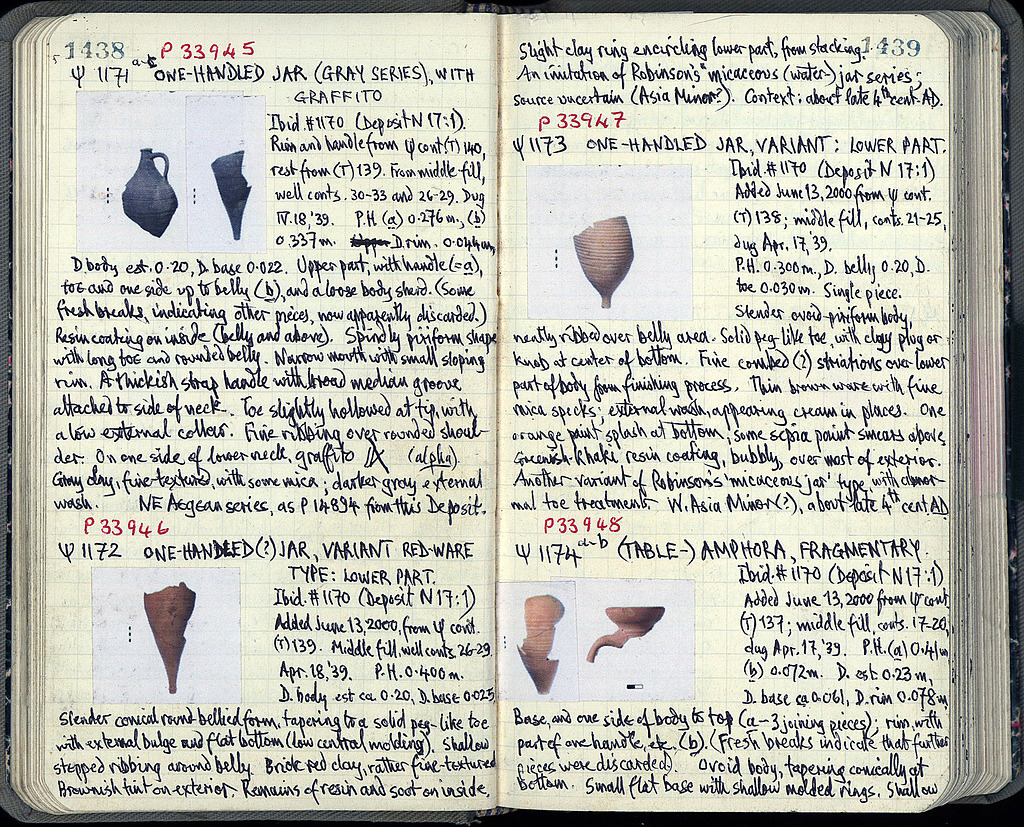 1438
P 33945
Ψ 1171 a-b ONE-HANDLED JAR (GRAY SERIES), WITH
GRAFFITO
Ibid. #1170 (Deposit N 17:1).
Rim and handle from Ψ cont (T) 140,
rest from (T) 139. From middle fill,
well conts. 30-33 and 26-29. Dug
IV.18,'39. P.H. (a) 0.276 m, (b)
0.337 m. D. rim. 0.044 m,
D. body est. 0.20, D. base 0.022. Upper part, with handle (=a),
toe and one side up to belly (b), and a loose body sherd. (Some
fresh breaks, indicating other pieces, now apparently discarded.)
Resin coating on inside (belly and above). Spindly piriform shape
with long toe and rounded belly. Narrow mouth with small sloping
rim. A thickish strap handle with broad median groove
attached to side of neck. Toe slightly hollowed at tip, with
a low external collar. Fine ribbing over rounded shoul-
der. On one side of lower neck, graffito (alpha).
Gray clay, fine-textured, with some mica; darker gray external
wash. NE Aegean series, as P 14894 from this Deposit.
P 33946
Ψ 1172 ONE-HANDLED (?) JAR, VARIANT RED-WARE
TYPE: LOWER PART.
Ibid. #1170 (Deposit N 17:1)
Added June 13, 2000, from Ψ cont.
(T) 139. Middle fill, well conts. 26-29.
Apr. 18,'39. P.H. 0.400 m.
D. body est ca 0.20, D. base 0.025
Slender conical round bellied form, tapering to a solid peg-like toe
with external bulge and flat bottom (low central molding). Shallow
stepped ribbing around belly. Brick red clay, rather fine-textured
Brownish tint on exterior. Remains of resin and soot on inside.
1439
Slight clay ring encircling lower part, from stacking.
An imitation of Robinson's "micaceous (water-) jar series;
source uncertain (Asia Minor?). Context: about late 4th cent. AD.
P 33947
Ψ 1173 ONE-HANDLED JAR, VARIANT: LOWER PART.
Ibid. #1170 (Deposit N 17:1)
Added June 13, 2000 from Ψ cont.
(T) 138; middle fill, conts. 21-25,
dug Apr. 17,'39.
P.H. 0.300 m., D. belly 0.20, D.
toe 0.030 m. Single piece.
Slender ovoid-piriform body,
neatly ribbed over belly area. Solid peg-like toe, with clay plug or
knob at center of bottom. Fine combed (?) striations over lower
part of body from finishing process. Thin brown ware with fine
mica specks; external wash, appearing cream in places. One
orange paint splash at bottom; some sepia paint smears above.
Greenish-khaki resin coating, bubbly, over most of exterior.
Another variant of Robinson's 'micaceous jar' type, with abnor-
mal toe treatment. W. Asia Minor (?), about late 4th cent AD
P 33948
Ψ 1174 a-b (TABLE-) AMPHORA, FRAGMENTARY.
Ibid. #1170 (Deposit N 17:1)
Added June 13, 2000 from Ψ cont
(T) 137; middle fill, conts. 17-20,
dug Apr. 17,'39. P.H. (a) 0.41 m
(b) 0.072 m. D. est 0.23 m,
D. base ca 0.061, D. rim 0.078 m
Base, and one side of body to top (a - 3 joining pieces); rim with
part of one handle, etc. (b). (Fresh breaks indicate that further
pieces were discarded). Ovoid body, tapering conically at
bottom. Small flat base with shallow molded rings. Shallow